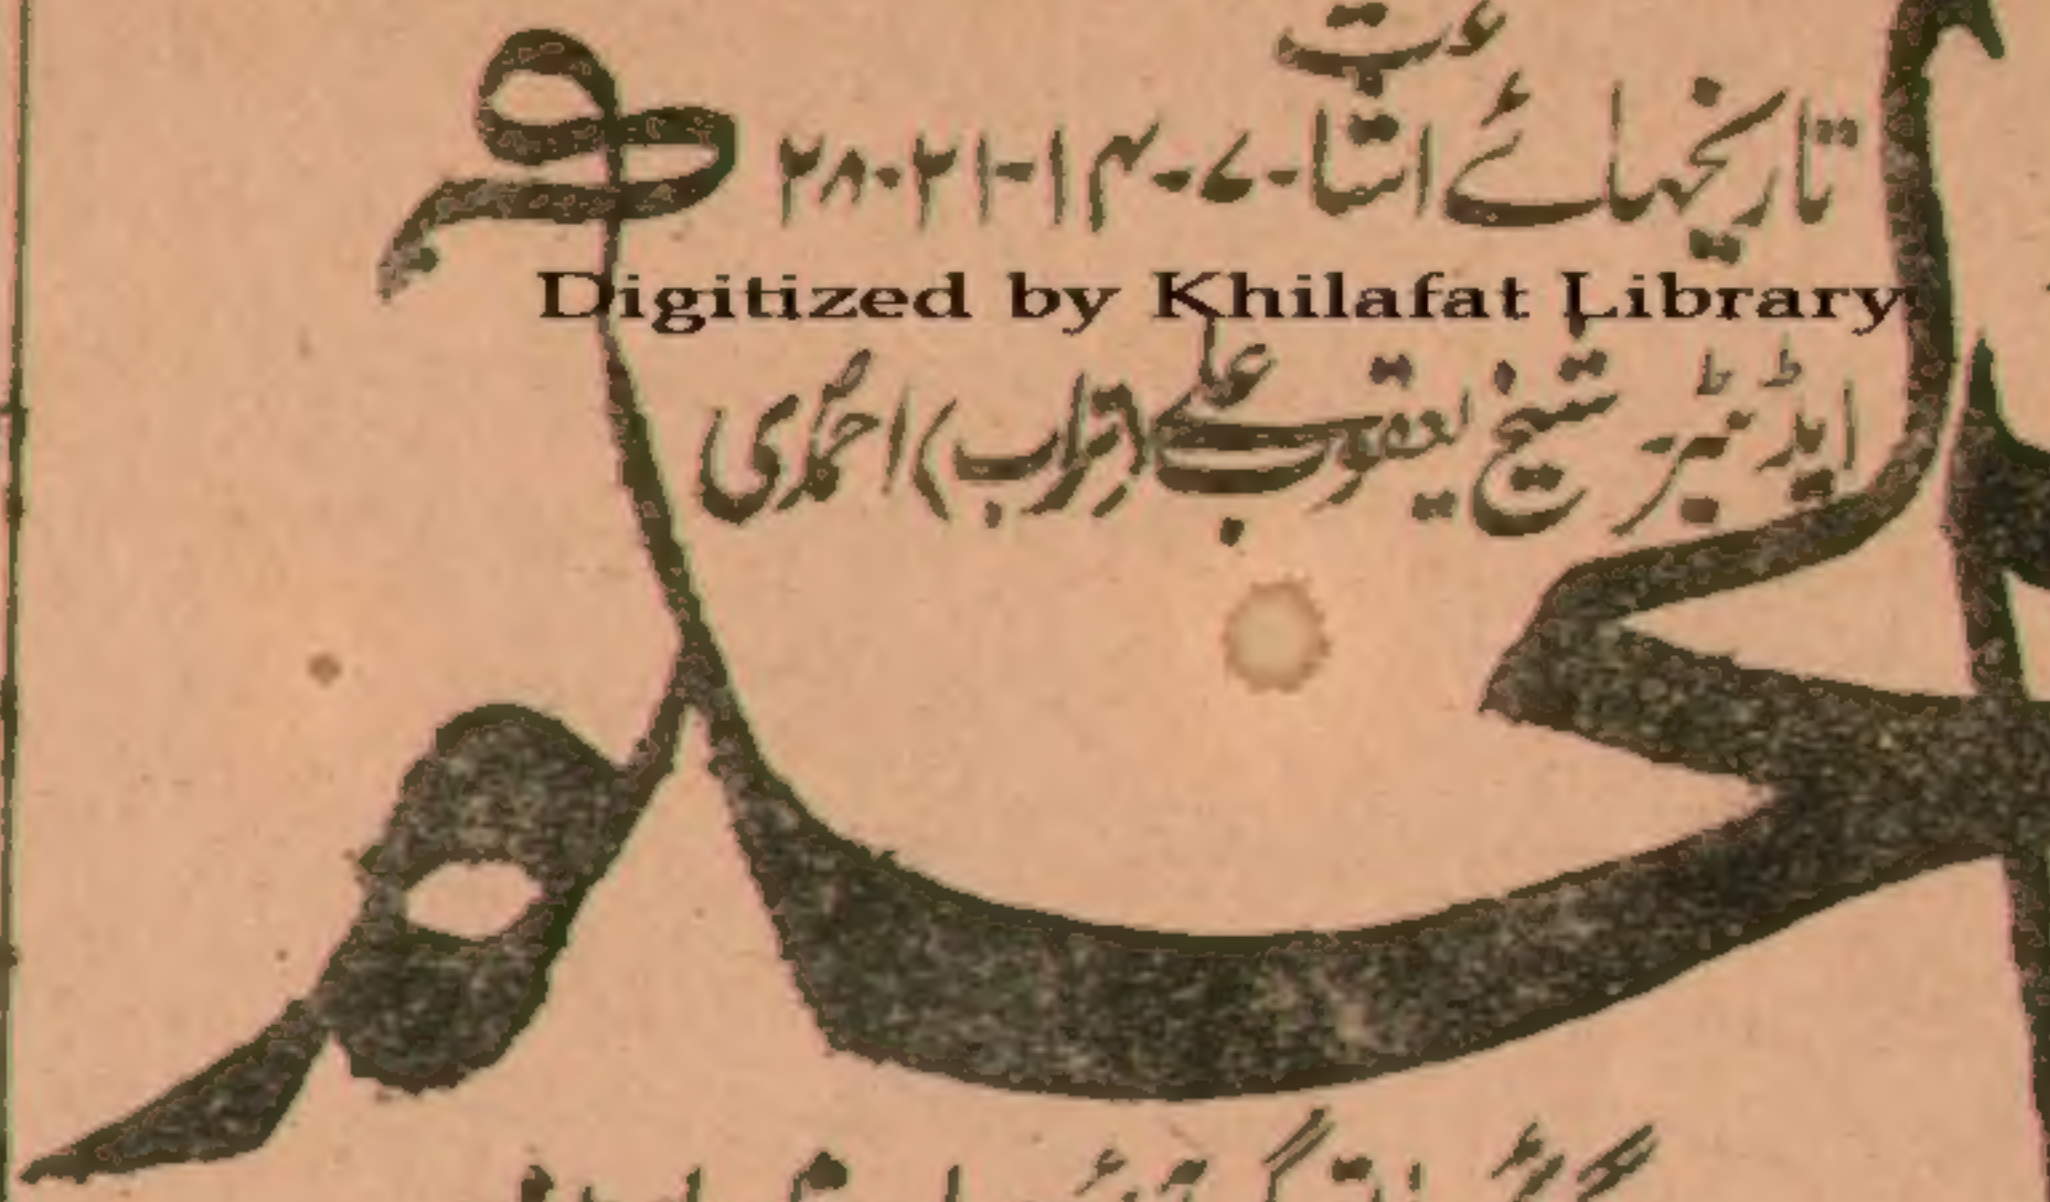 تاریخہائے اشاعت ۷-۱۴-۲۱-۲۸
Digitized by Khilafat Library
ایڈیٹر شیخ یعقوب علی (تراب) احمدی
الحکم